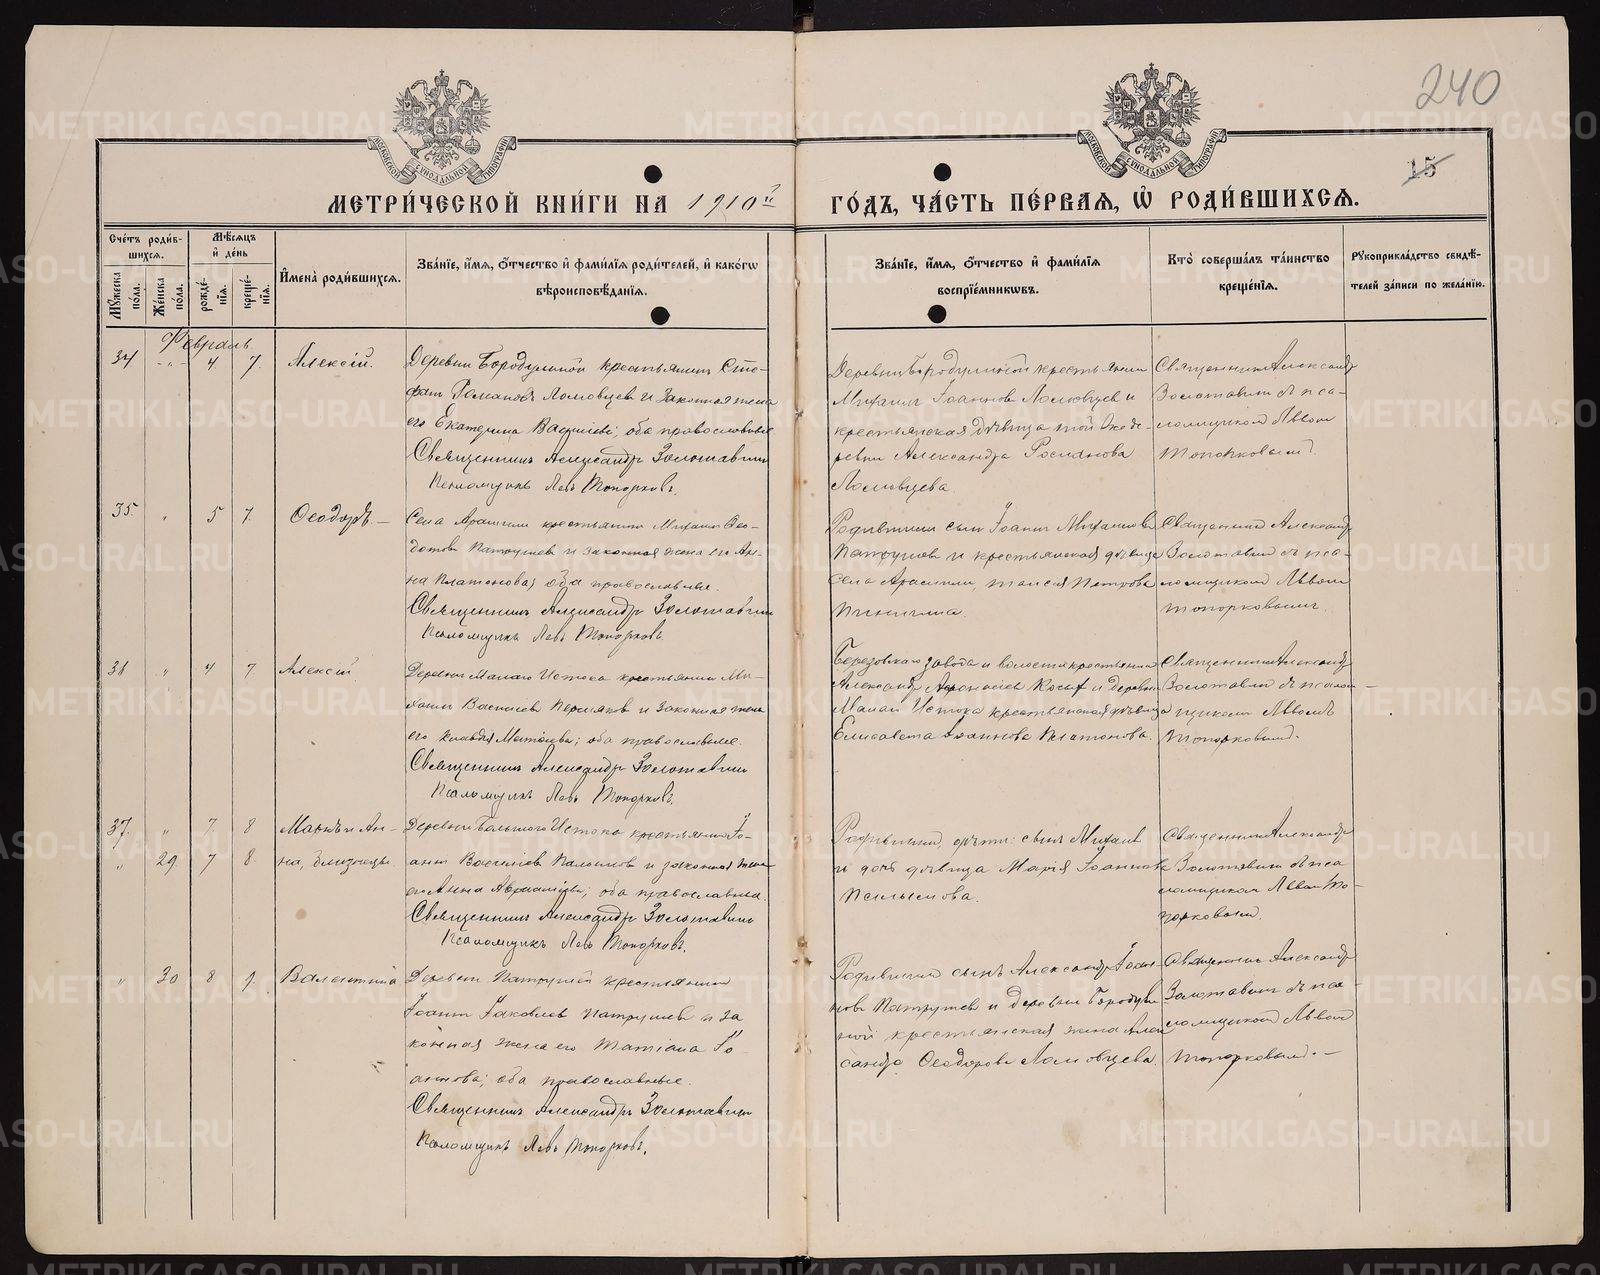 240
15
МОСКОВСКОЙ СУНОДАЛЬНОЙ ТИПОГРАФІИ
МОСКОВСКОЙ СУНОДАЛЬНОЙ ТИПОГРАФІИ
МЕТРИ́ЧЕСКОЙ КНИ́ГИ НА 1910й ГО́ДЪ, ЧА́СТЬ ПЕ́РВАѦ, Ѡ҆ РОДИ́ВШИХСѦ.
Сче́тъ роди́в-
шихсѧ.
Мꙋжеска по́ла.
Же́нска по́ла.
Мѣ́сѧцъ
и҆ де́нь
рожде́-
нїѧ.
креще́-
нїѧ.
И҆мена̀ роди́вшихсѧ.
Зва́нїе, и҆́мѧ, ѻ҆́тчество и҆ фами́лїѧ роди́телей, и҆ како́гѡ
вѣроисповѣ́данїѧ.
Зва́нїе, и҆́мѧ, ѻ҆́тчество и҆ фами́лїѧ
воспрїе́мникѡвъ.
Кто̀ соверша́лъ та́инство
креще́нїѧ.
Рꙋкоприкла́дство свидѣ́-
телей за́писи по жела́нїю.
Февраль
34 " 4 7. Алексій.
Деревни Бородулиной крестьянинъ Сте-
фанъ Романовъ Ломовцев и законная жена
его Екатерина Васильева; оба православные
Священникъ Александръ Золотавинъ
Псаломщикъ Левъ Топорковъ.
Деревни Бородулиной крестьянин
Михаилъ Іоаннов Ломовцев и
крестьянская дѣвица той же де-
ревни Александра Романова
Ломовцева
Священник Александр
Золотавин съ пса-
ломщиком Львом
Топорковым.
35. " 5 7. Ѳеодоръ. —
Села Арамили крестьянин Михаил Ѳео-
дотов Патрушев и законная жена его Ан-
на Платонова; оба православные.
Священникъ Александръ Золотавин
Псаломщикъ Левъ Топорковъ.
Родившим сын Іоанн Михаилов
Патрушев и крестьянская дѣвица
села Арамили, Таисия Петрова
Священник Александр
Золотавин съ пса-
ломщиком Львом
Топорковым.
36 " 4 7. Алексій.
Деревни Малаго Истока крестьянин Ми-
хаил Васильев Пермяков и законная жена
его Клавдія; оба православные.
Священникъ Александръ Золотавин
Псаломщикъ Левъ Топорковъ.
Березовскаго завода и волости крестьянин
Александр и деревни
Малаго Истока крестьянская дѣвица
Елисавета Іоаннова Платонова.
Священник Александр
Золотавин съ псалом-
щиком Львомъ
Топорковым.
37. " 7 8 и Ан-
" 29 7 8. на, близнецы.
Деревни Большого Истока крестьянин Іо-
анн Васильев и законная жена
его Анна; оба православные.
Священникъ Александръ Золотавин
Псаломщикъ Левъ Топорковъ.
дѣти: сын Михаил
и дочь дѣвица Марія Іоаннова
Священник Александр
Золотавин съ пса-
ломщиком Львом То-
порковым.
" 30 8 9. Валентина
Деревни крестьянин
Іоанн Іаковлев Патрушев и за
конная жена его Татіана Іо-
аннова; оба православные.
Священникъ Александръ Золотавин
Псаломщикъ Левъ Топорковъ.
сынъ Александр Іоан-
нов Патрушев и деревни Бородули-
ной крестьянская жена Алек
сандра Ѳеодорова Ломовцева.
Священник Александр
Золотавин съ пса-
ломщиком Львом
Топорковым. —
METRIKI.GASO-URAL.RU